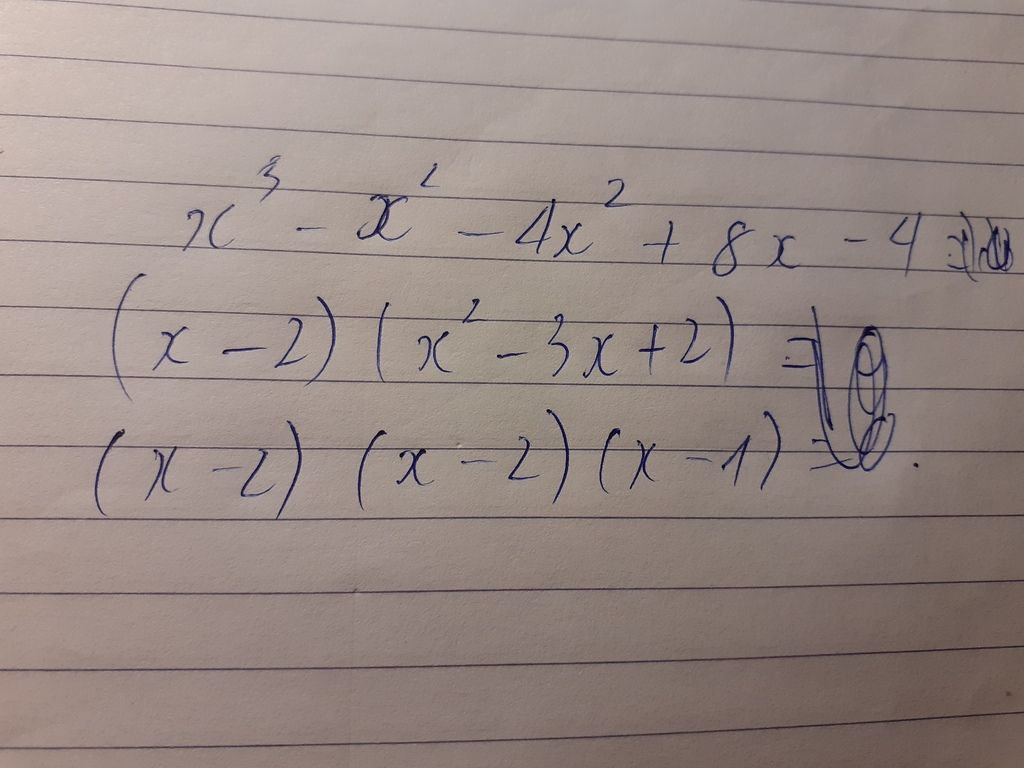 x³ - x² - 4x² + 8x - 4 =
(x - 2) (x² - 3x + 2) =
(x - 2) (x - 2) (x - 1) = .